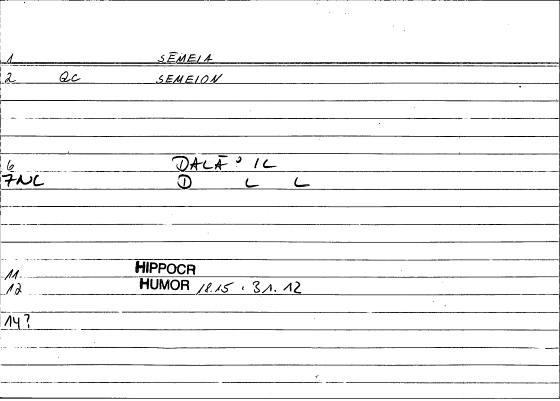 1 SĒMEIA
2 QC SEMEION
6 DALĀʾIL
7NC D L L
11 HIPPOCR
12 HUMOR 18.15 . 31. 12
14?